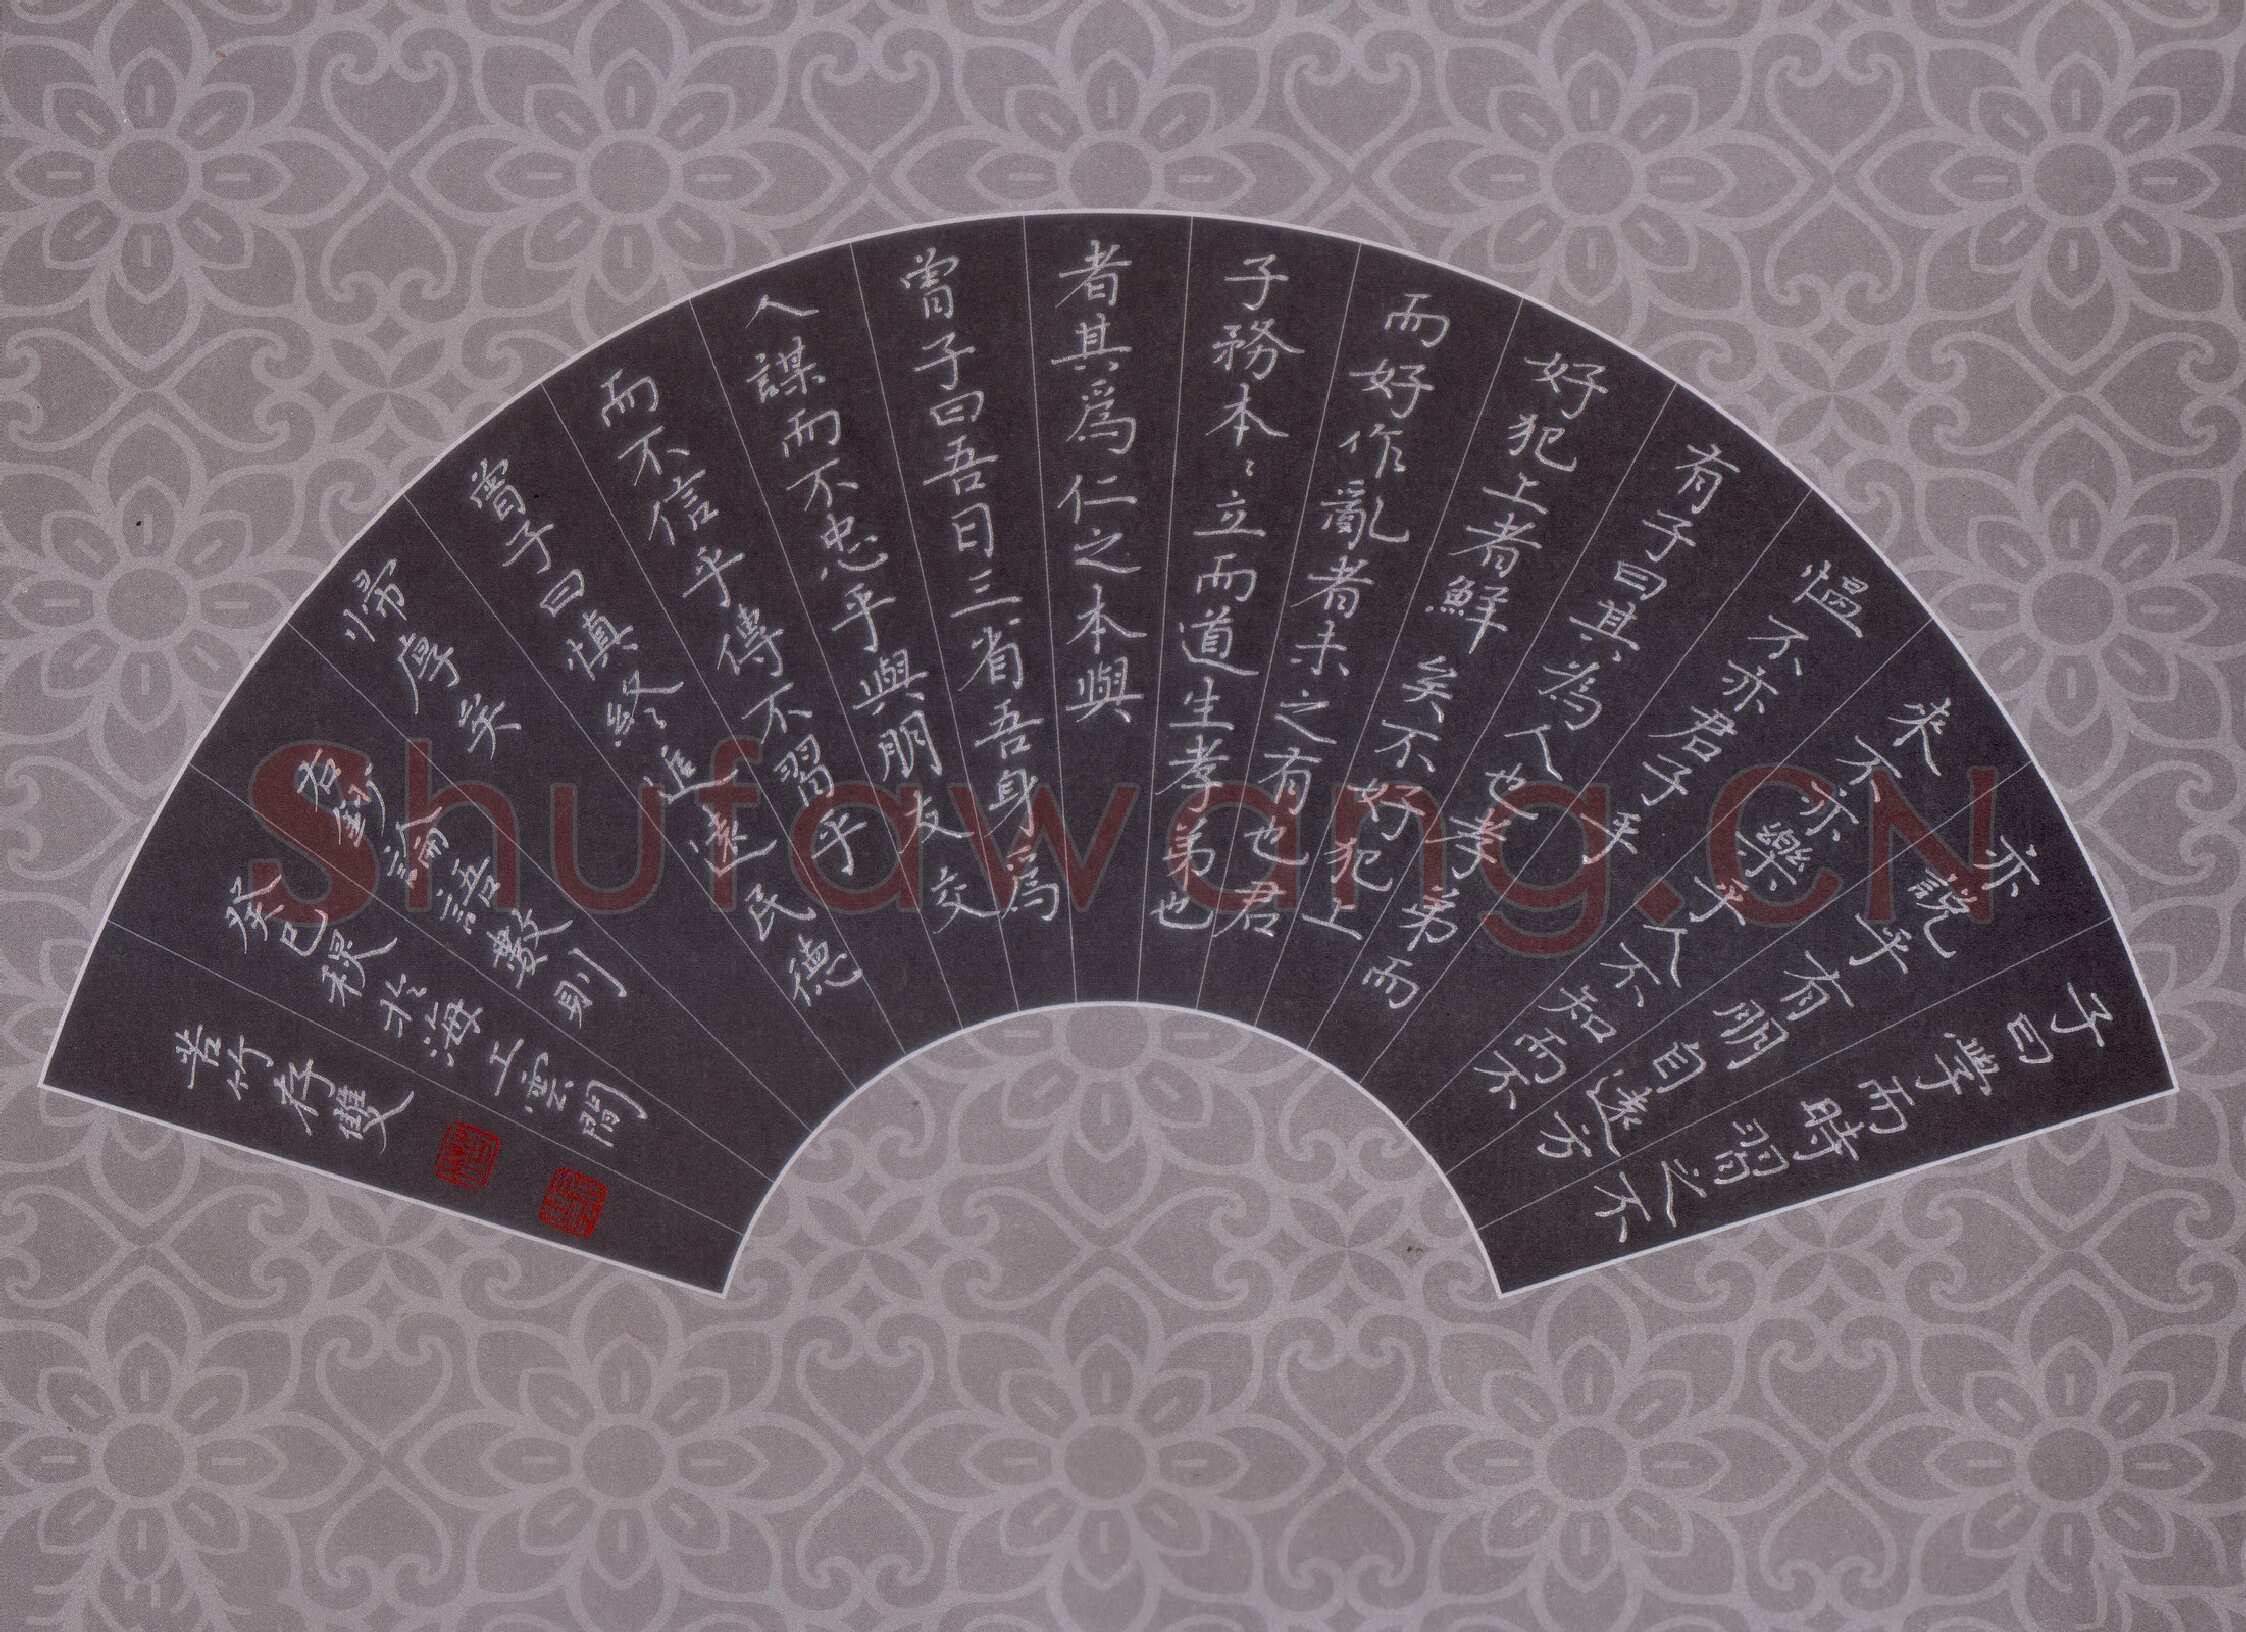 子曰學而時習之不
亦說乎有朋自遠方
來不亦樂乎人不知而不
慍不亦君子乎
有子曰其為人也孝弟而
好犯上者鮮矣不好犯上
而好作亂者未之有也君
子務本〻立而道生孝弟也
者其為仁之本與
曾子曰吾日三省吾身為
人謀而不忠乎與朋友交
而不信乎傳不習乎
曾子曰慎終追遠民德
歸厚矣
右錄論語數則
癸巳秋於海上雲間
苦竹存雙
Shufawang.CN